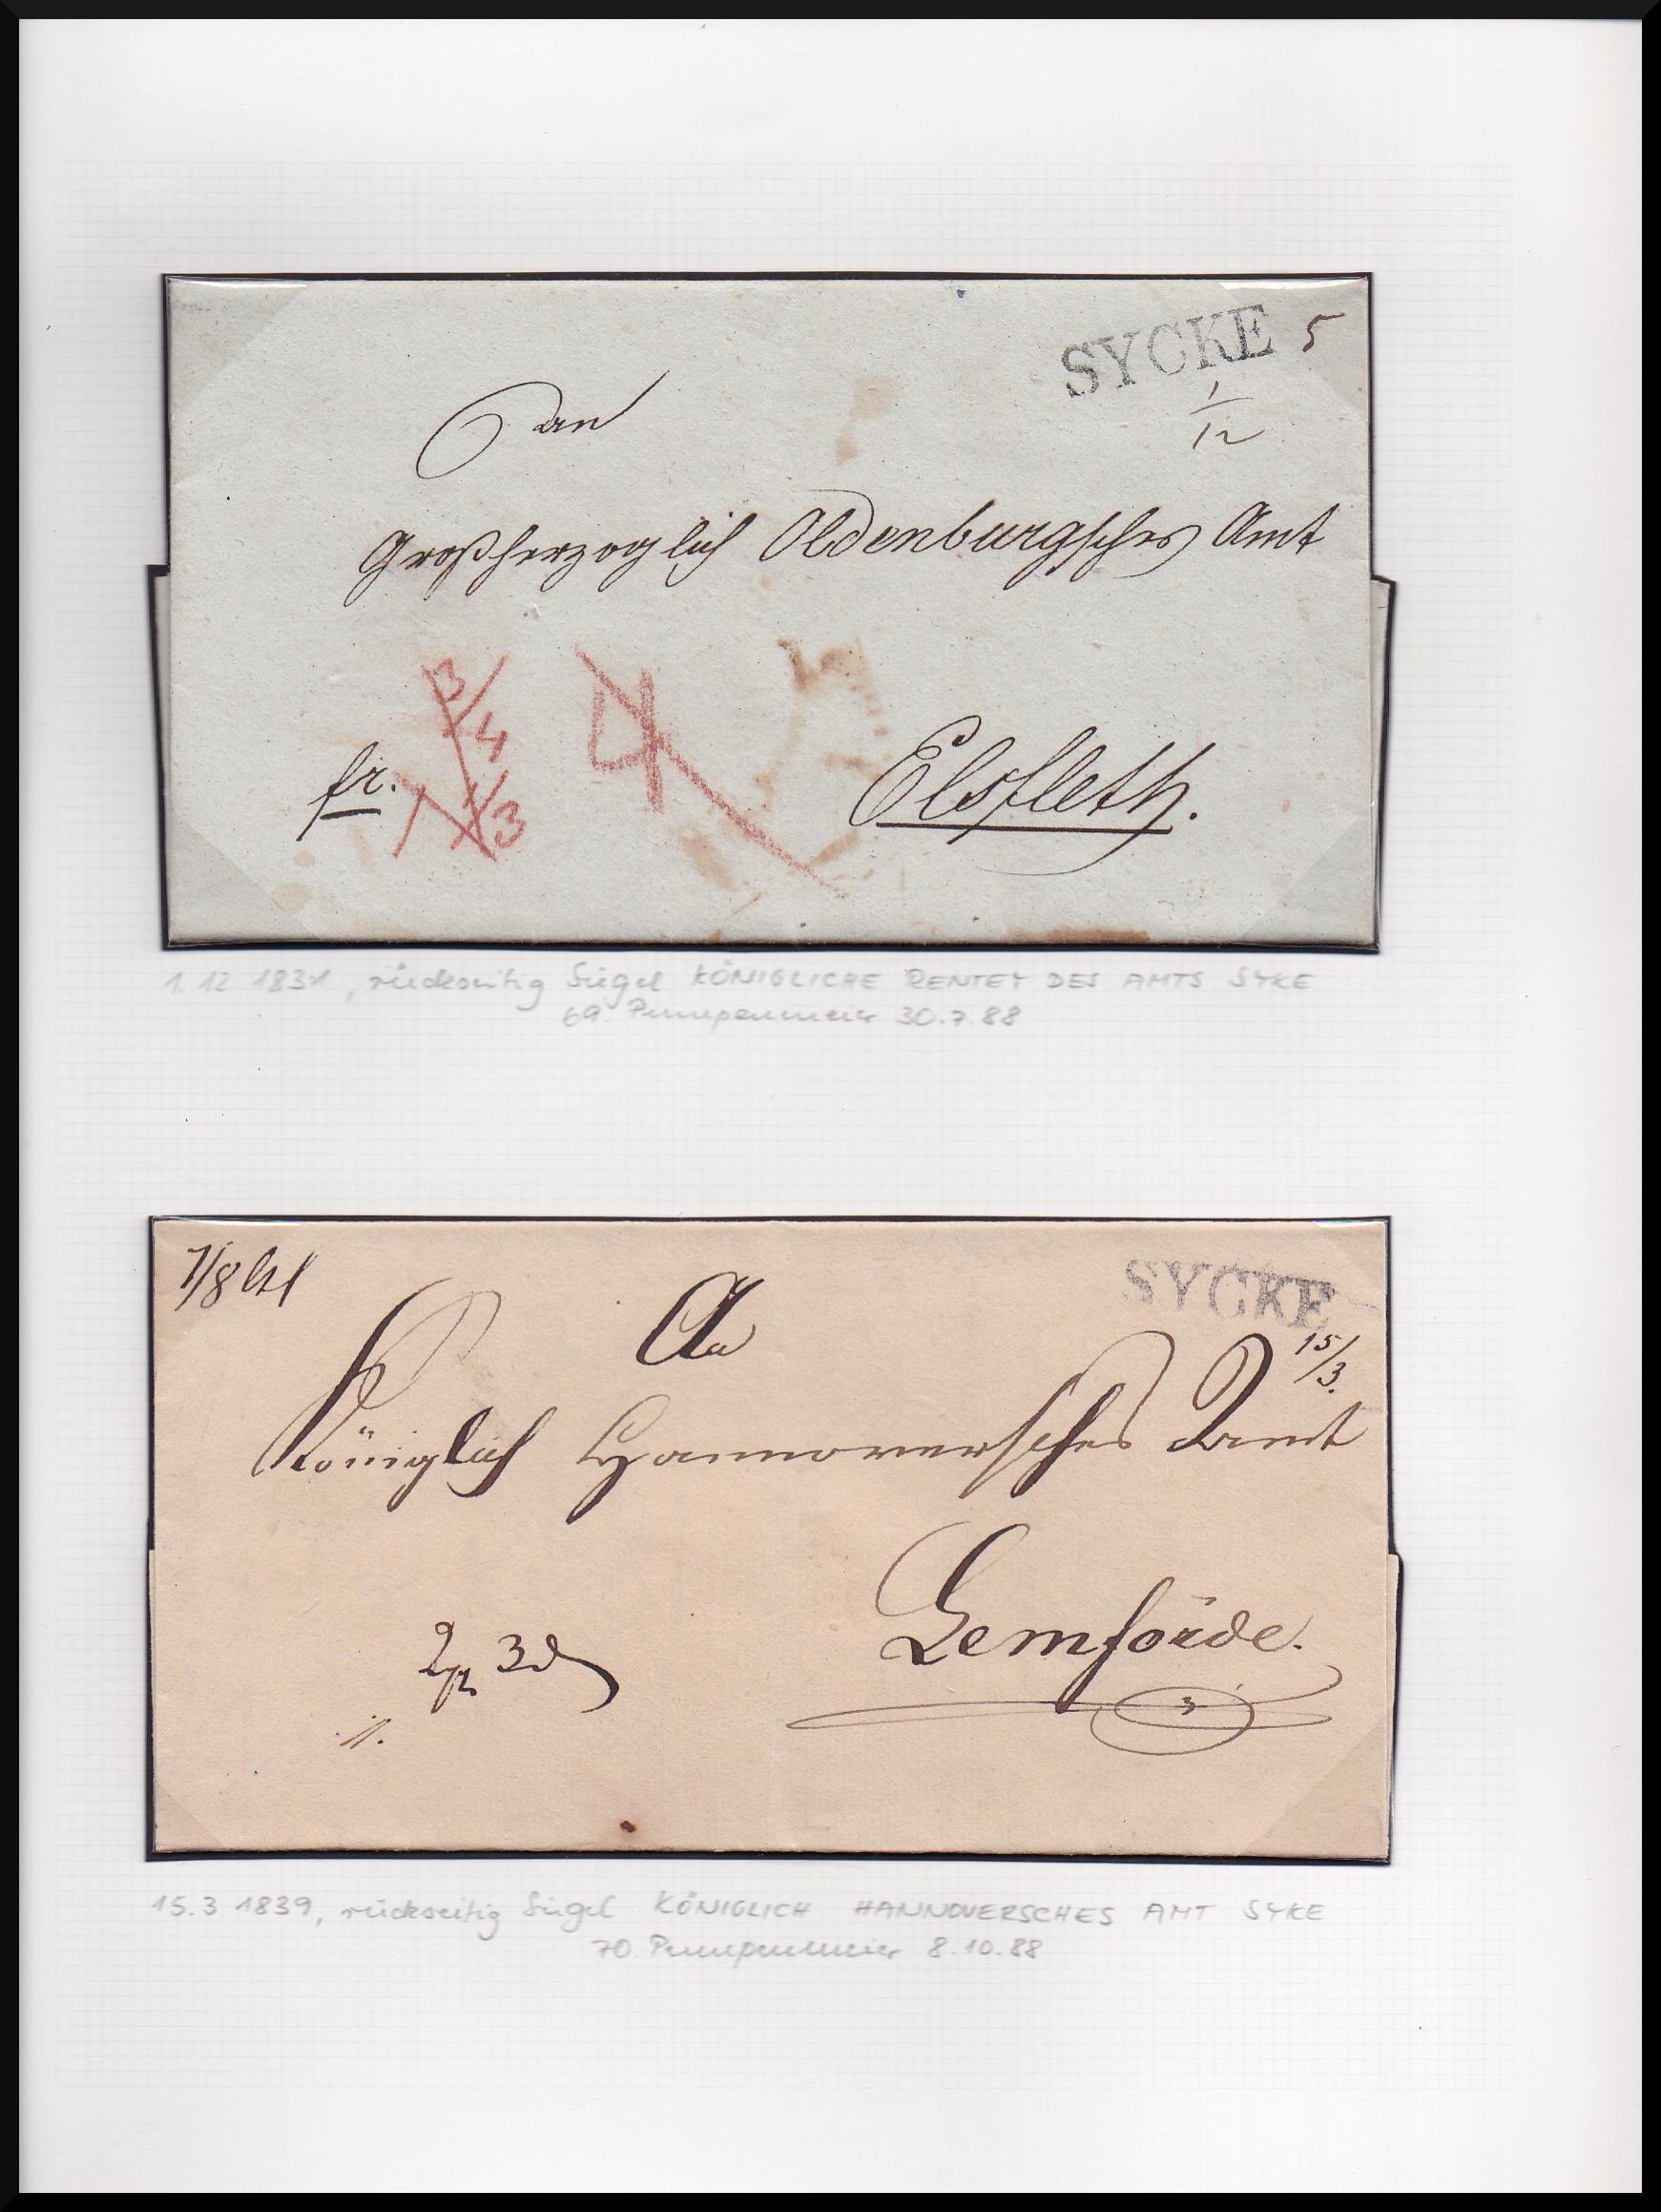 SYCKE 5
1/12
an
Großherzoglich Oldenburgsches Amt
3/4
4
fr.
1 1/3
Elsfleth.
1.12 1831, rückseitig Siegel KÖNIGLICHE RENTEY DES AMTS SYKE
69. Pumpenmeier 30.7.88
SYCKE
15/3.
An
Königlich Hannoversches Amt
Lemförde.
3
15.3 1839, rückseitig Siegel KÖNIGLICH HANNOVERSCHES AMT SYKE
70. Pumpenmeier 8.10.88